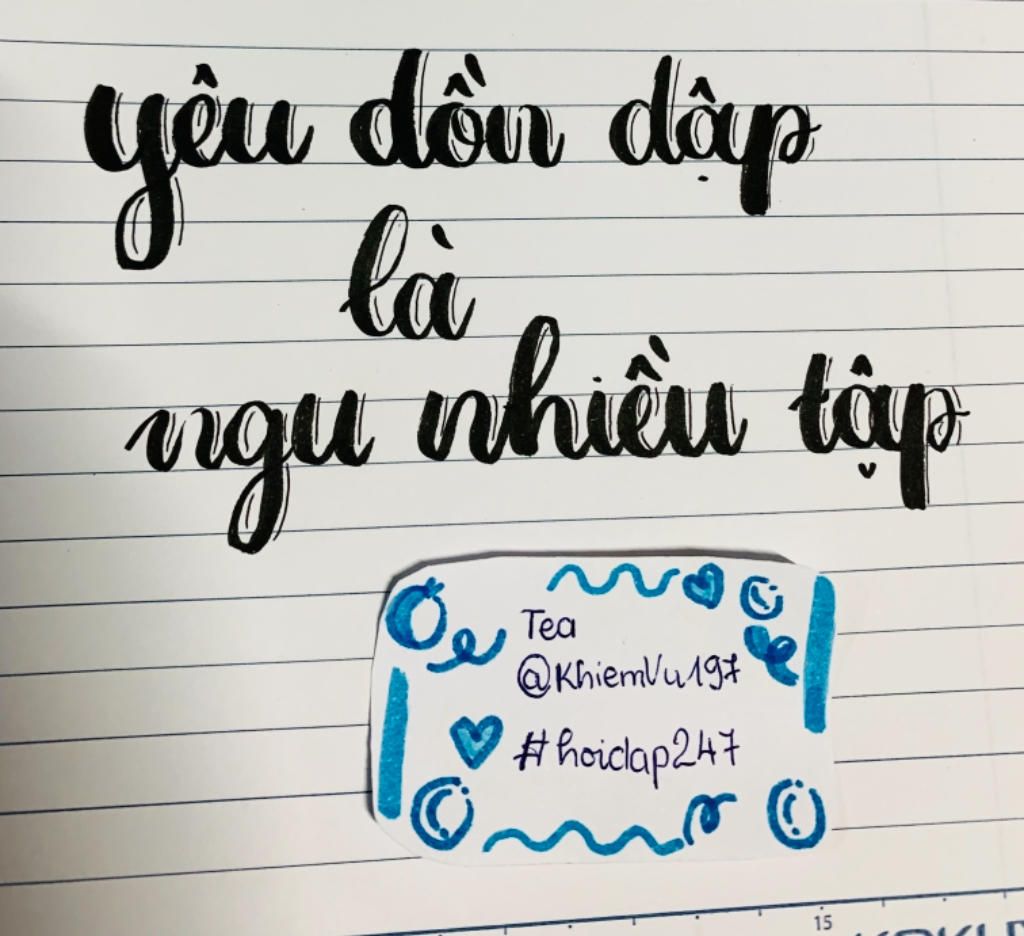 yêu dồn dập
là
ngu nhiều tập
Tea
@KhiemVu197
#hoidap247
15